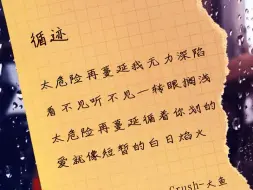 循迹
太危险再蔓延我无力深陷
看不见听不见一转眼搁浅
太危险再蔓延循着你划的
爱就像短暂的白日焰火
Crush-大鱼